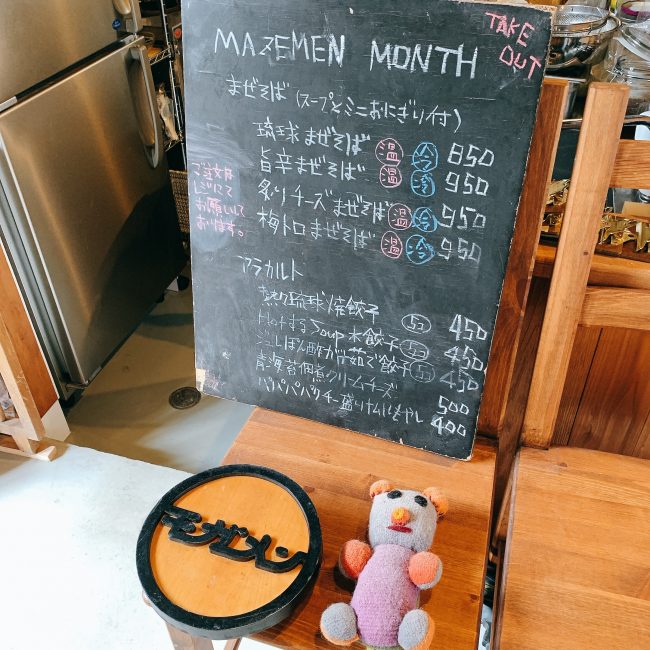 MAZEMEN MONTH
TAKE OUT
まぜそば(スープとミニおにぎり付)
琉球まぜそば 温 冷 850
旨辛まぜそば 温 冷 950
炙りチーズまぜそば 温 冷 950
梅トロまぜそば 温 冷 950
ご注文は
レジにて
お願いして
おります。
アラカルト
熱々琉球焼餃子 5コ 450
Hotする Soup 水餃子 5コ 450
ジュレぽん酢 茹で餃子 5コ 450
青海苔佃煮クリームチーズ 500
パパパパクチー盛り もやし 400
モガメン